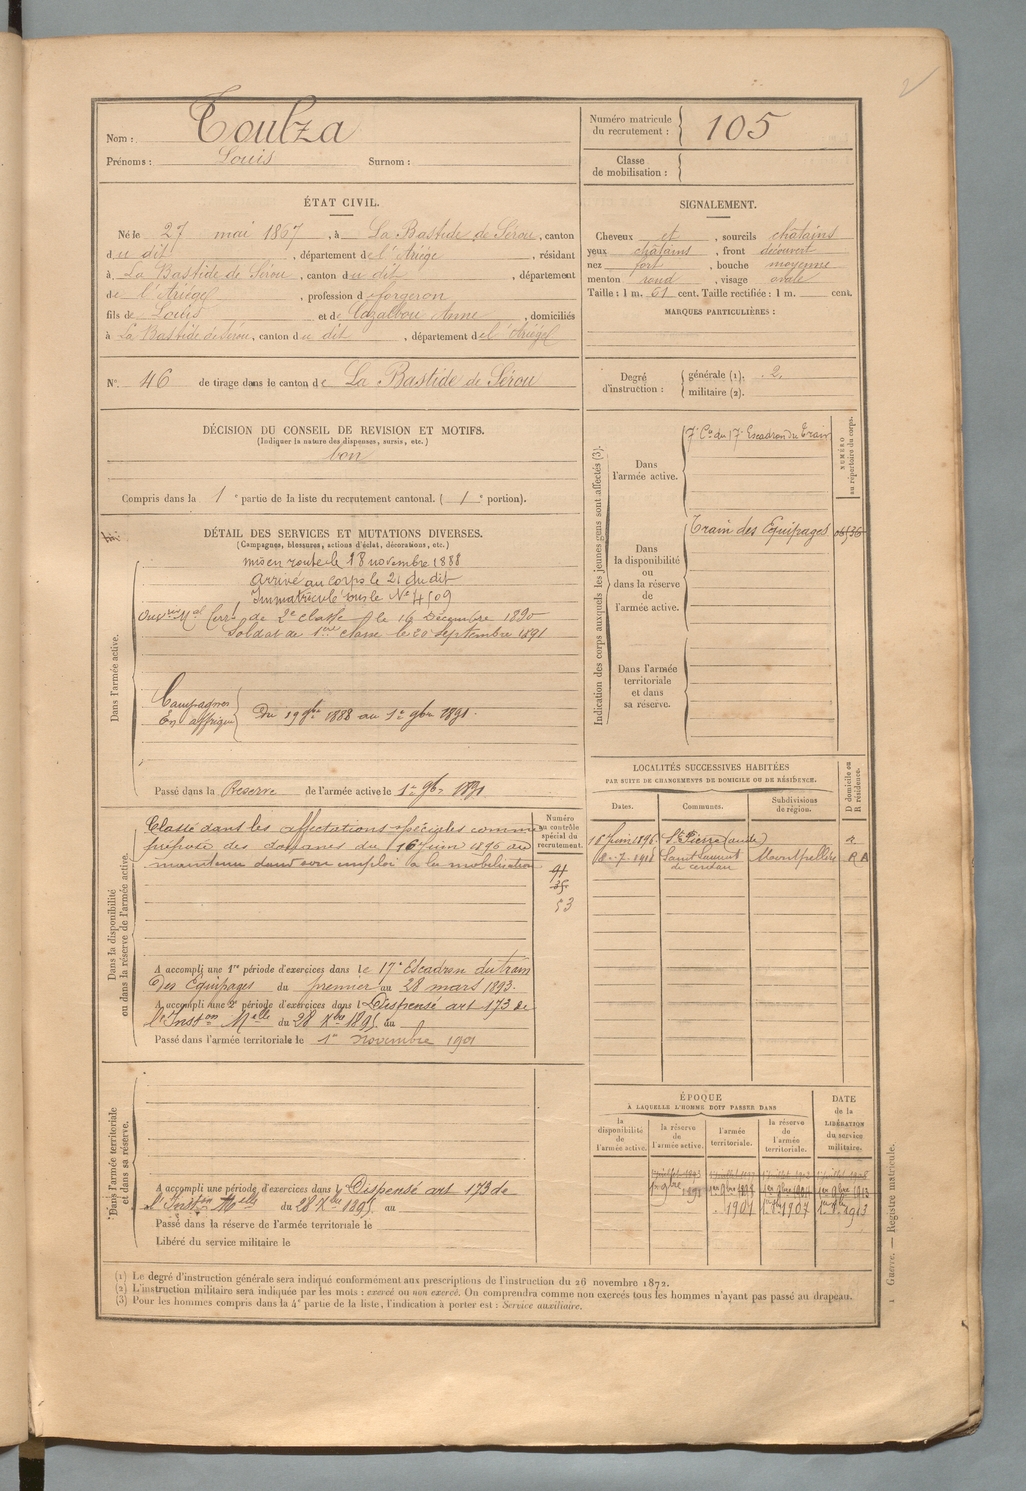 2
Nom : Toulza
Prénoms : Louis Surnom :
Numéro matricule du recrutement : 105
Classe de mobilisation :
ÉTAT CIVIL.
Né le 27 mai 1867, à La Bastide de Sérou, canton
du dit, département de l'Ariége, résidant
à La Bastide de Sérou, canton du dit, département
de l'Ariége, profession d forgeron
fils de Louis et de Cazalbou Anne, domiciliés
à La Bastide de Sérou, canton du dit, département de l'Ariége
SIGNALEMENT.
Cheveux et, sourcils châtains
yeux châtains, front découvert
nez fort, bouche moyenne
menton rond, visage ovale
Taille : 1 m. 61 cent. Taille rectifiée : 1 m. cent.
MARQUES PARTICULIÈRES :
N° 46 de tirage dans le canton de La Bastide de Sérou
Degré d'instruction : générale (1). 2.
militaire (2).
DÉCISION DU CONSEIL DE REVISION ET MOTIFS.
(Indiquer la nature des dispenses, sursis, etc.)
bon
Compris dans la 1e partie de la liste du recrutement cantonal. (1e portion).
DÉTAIL DES SERVICES ET MUTATIONS DIVERSES.
(Campagnes, blessures, actions d'éclat, décorations, etc.)
Dans l'armée active.
mis en route le 18 novembre 1888
Arrivé au corps le 21 du dit
Immatriculé sous le N° 4509
de 2e classe le 16 Décembre 1890
Soldat de 1ère classe le 20 septembre 1891
Campagnes
En affrique
Du 19 9bre 1888 au 1er 9bre 1891.
Passé dans la Réserve de l'armée active le 1er 9bre 1891
Indication des corps auxquels les jeunes gens sont affectés (3).
NUMÉRO au répertoire du corps.
Dans l'armée active.
7e Cie du 17e Escadron du Train
Dans la disponibilité ou dans la réserve de l'armée active.
Train des Equipages
Dans l'armée territoriale et dans sa réserve.
LOCALITÉS SUCCESSIVES HABITÉES
PAR SUITE DE CHANGEMENTS DE DOMICILE OU DE RÉSIDENCE.
D domicile ou R résidence.
Dates. Communes. Subdivisions de région.
16 Juin 1896 St Pierre (aude) R
8-7-1911 Saint Laurent de cerdan Montpellier RA
Dans la disponibilité ou dans la réserve de l'armée active.
Numéro au contrôle spécial du recrutement.
Classé dans les affectations spéciales comme
préposé des douanes du 16 Juin 1896 au
maintenu dans son emploi à la mobilisation
91
53
A accompli une 1re période d'exercices dans le 17e Escadron du train
des Equipages du premier au 28 mars 1893.
A accompli une 2e période d'exercices dans l Dispensé art 173 de
l'Insson Melle du 28 Xbre 1895 au
Passé dans l'armée territoriale le 1er novembre 1901
Dans l'armée territoriale et dans sa réserve.
A accompli une période d'exercices dans l Dispensé art 173 de
l'Insson Melle du 28 Xbre 1895 au
Passé dans la réserve de l'armée territoriale le
Libéré du service militaire le
ÉPOQUE
À LAQUELLE L'HOMME DOIT PASSER DANS
DATE de la LIBÉRATION du service militaire.
la disponibilité de l'armée active. la réserve de l'armée active. l'armée territoriale. la réserve de l'armée territoriale.
1er 9bre 1891
1901 1er 9bre 1907 1er 9bre 1913
(1) Le degré d'instruction générale sera indiqué conformément aux prescriptions de l'instruction du 26 novembre 1872.
(2) L'instruction militaire sera indiquée par les mots : exercé ou non exercé. On comprendra comme non exercés tous les hommes n'ayant pas passé au drapeau.
(3) Pour les hommes compris dans la 4e partie de la liste, l'indication à porter est : Service auxiliaire.
1 Guerre. — Registre matricule.